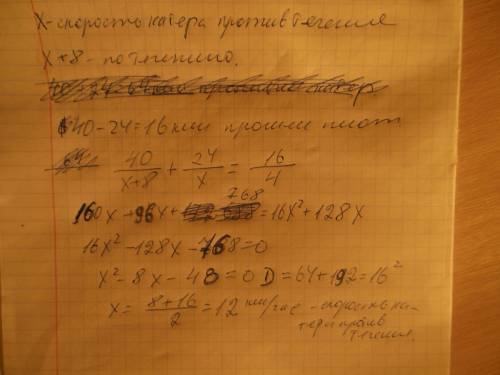 X-скорость катера против течения
X+8 - по течению.
40-24=16км прошли плот
40/x+8 + 24/x = 16/4
768
160x+96x+ =16x²+128x
16x²-128x-768=0
x²-8x-48=0 D=64+192=16²
x= 8+16/2 =12 км/час - скорость ка-
тера против
течения.